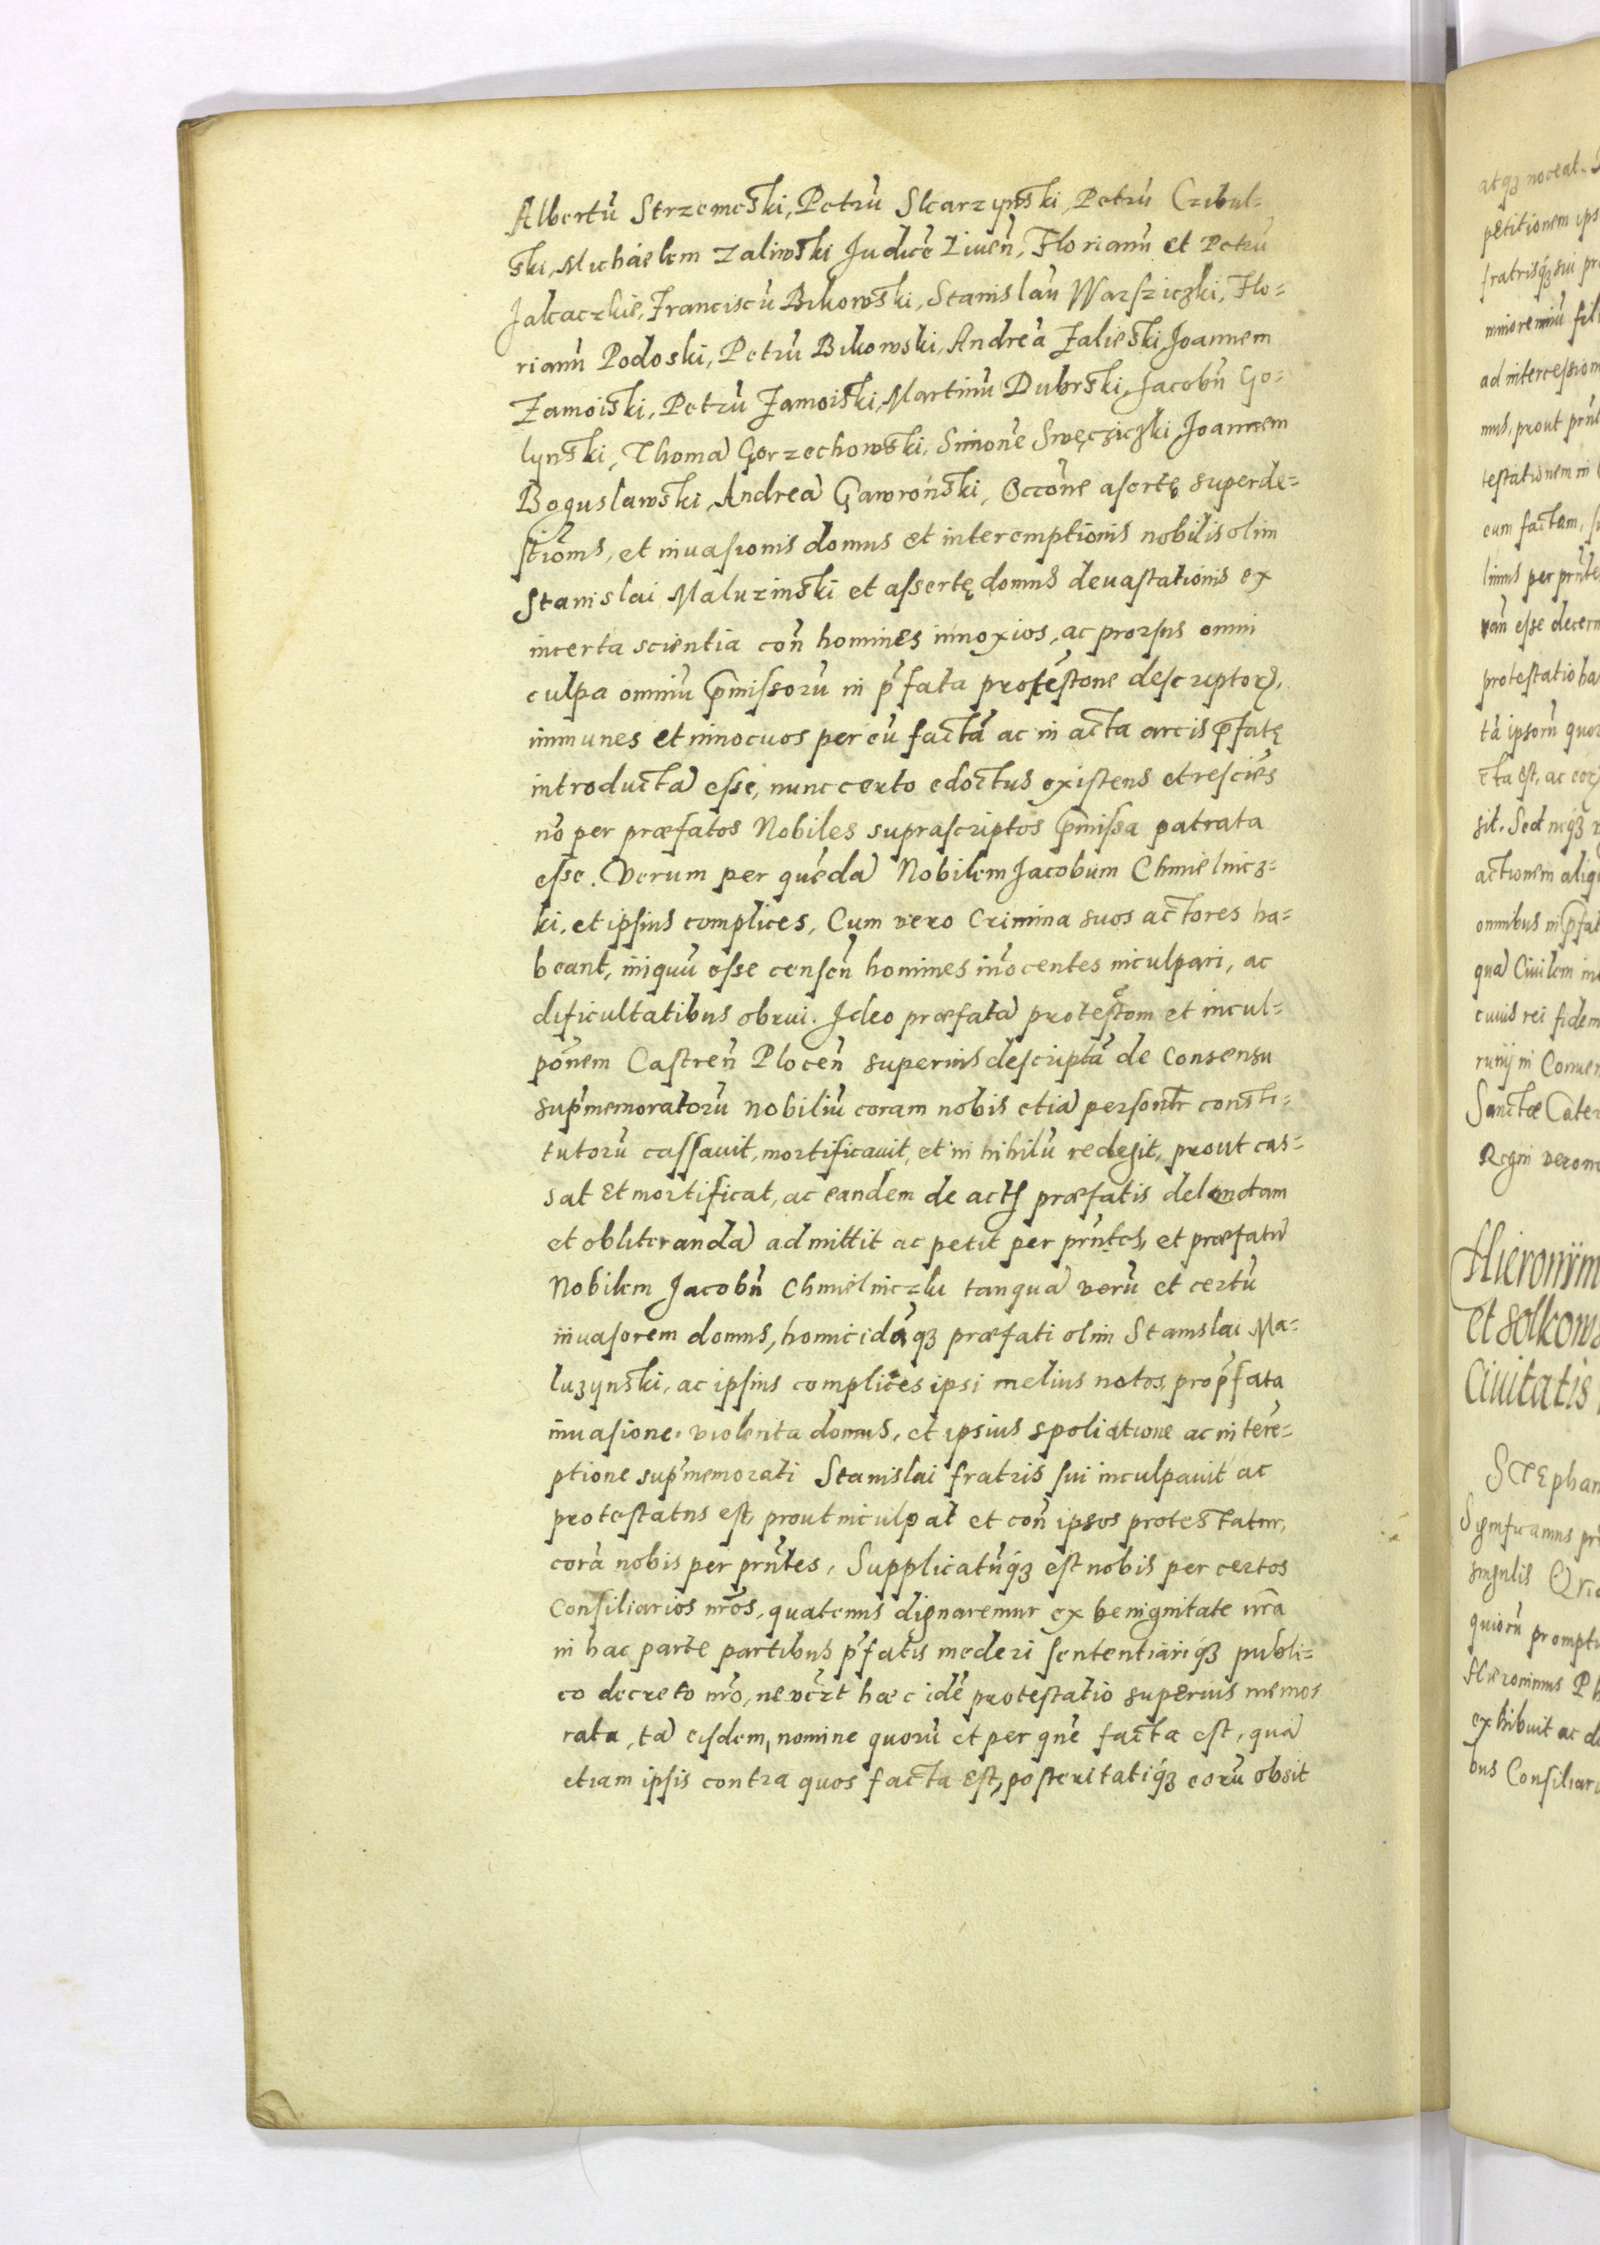 Albertū Strzemeski, Petrū Skarzynski, Petrū Czibul=
ski, Michaelem Zaliwski Judicē Liuen̄, Florianū et Petrū
Jakackie, Franciscū Bikowski, Stanislau Warsziczki, Flo=
rianū Podoski, Petrū Bikowski, Andreā Zalieski, Joannem
Zamoiski, Petrū Zamoiski, Martinū Dubrski, Jacobū Go=
lynski, Thomā Gorzechowski, Simonē Swęcziczki Joannem
Boguslawski, Andreā Gawronski, occōne asertę superde=
stiōms, et inuasionis domus et interemptionis nobilis olim
Stanislai Maluzinski et assertę domus deuastationis ex
incerta scientia con̄ homines innoxios, ac prorsus omni
culpa omniū p̄missorū in p̄fata protestōne descriptorꝝ,
immunes et innocuos per eū factā ac in acta arcis p̄fatę
introductā esse, nunc certo edoctus existens et resciēs
nō per præfatos Nobiles suprascriptos p̄missa patrata
esse. Verum per quēdā Nobilem Jacobum Chmielnicz=
ki, et ipsius complices, Cum vero Crimina suos actores ha=
beant, iniquū esse censen̄ homines inocentes inculpari, ac
dificultatibus obrui. Ideo præfatā protestōm et incul=
pōnem Castren̄ Plocen̄ superius descriptā de Consensu
sup̄memoratorū nobiliū coram nobis etiā personlr̄ consti=
tutorū cassauit, mortificauit, et in nihilū redegit, prout cas=
sat et mortificat, ac eandem de actis præfatis delendam
et obliterandā admittit ac petit per prn̄tes, et præfatū
Nobilem Jacobū Chmielniczki tanquā verū et certū
inuasorem domus, homicidāqꝫ præfati olim Stanislai Ma=
luzynski, ac ipsius complices ipsi melius notos, pro p̄fata
inuasione violenta domus, et ipsius spoliatione ac interē=
ptione sup̄memorati Stanislai fratris sui inculpauit ac
protestatus est, prout inculpat et con̄ ipsos protestatur,
corā nobis per prn̄tes, Supplicatūqꝫ est nobis per certos
Consiliarios nr̄os, quatenus dignaremur ex benignitate nr̄a
in hac parte partibus p̄fatis mederi sententiariqꝫ publi=
co decreto nr̄o, ne vēt hæc idē protestatio superius memo
rata, tā eisdem, nomine quorū et per quē facta est, quā
etiam ipsis contra quos facta est, posteritatiqꝫ eorū obsit
atqꝫ noceat.
petitionem
fratrisqꝫ sui
minorenniū
ad intercession
mus, prout
testationem in
eum factam,
limus per
esse decern
protestatio
tā ipsorū
cta est, ac
sit. Sed
actionem
omnibus in
quā Ciuilem
cuius rei fidem
in Conuen
Sanctæ Cater
Regni
Hieronim
et
Ciuitatis
Stephan
Significamus
singulis
quiorū promptu
exhibuit ac
bus Consiliar